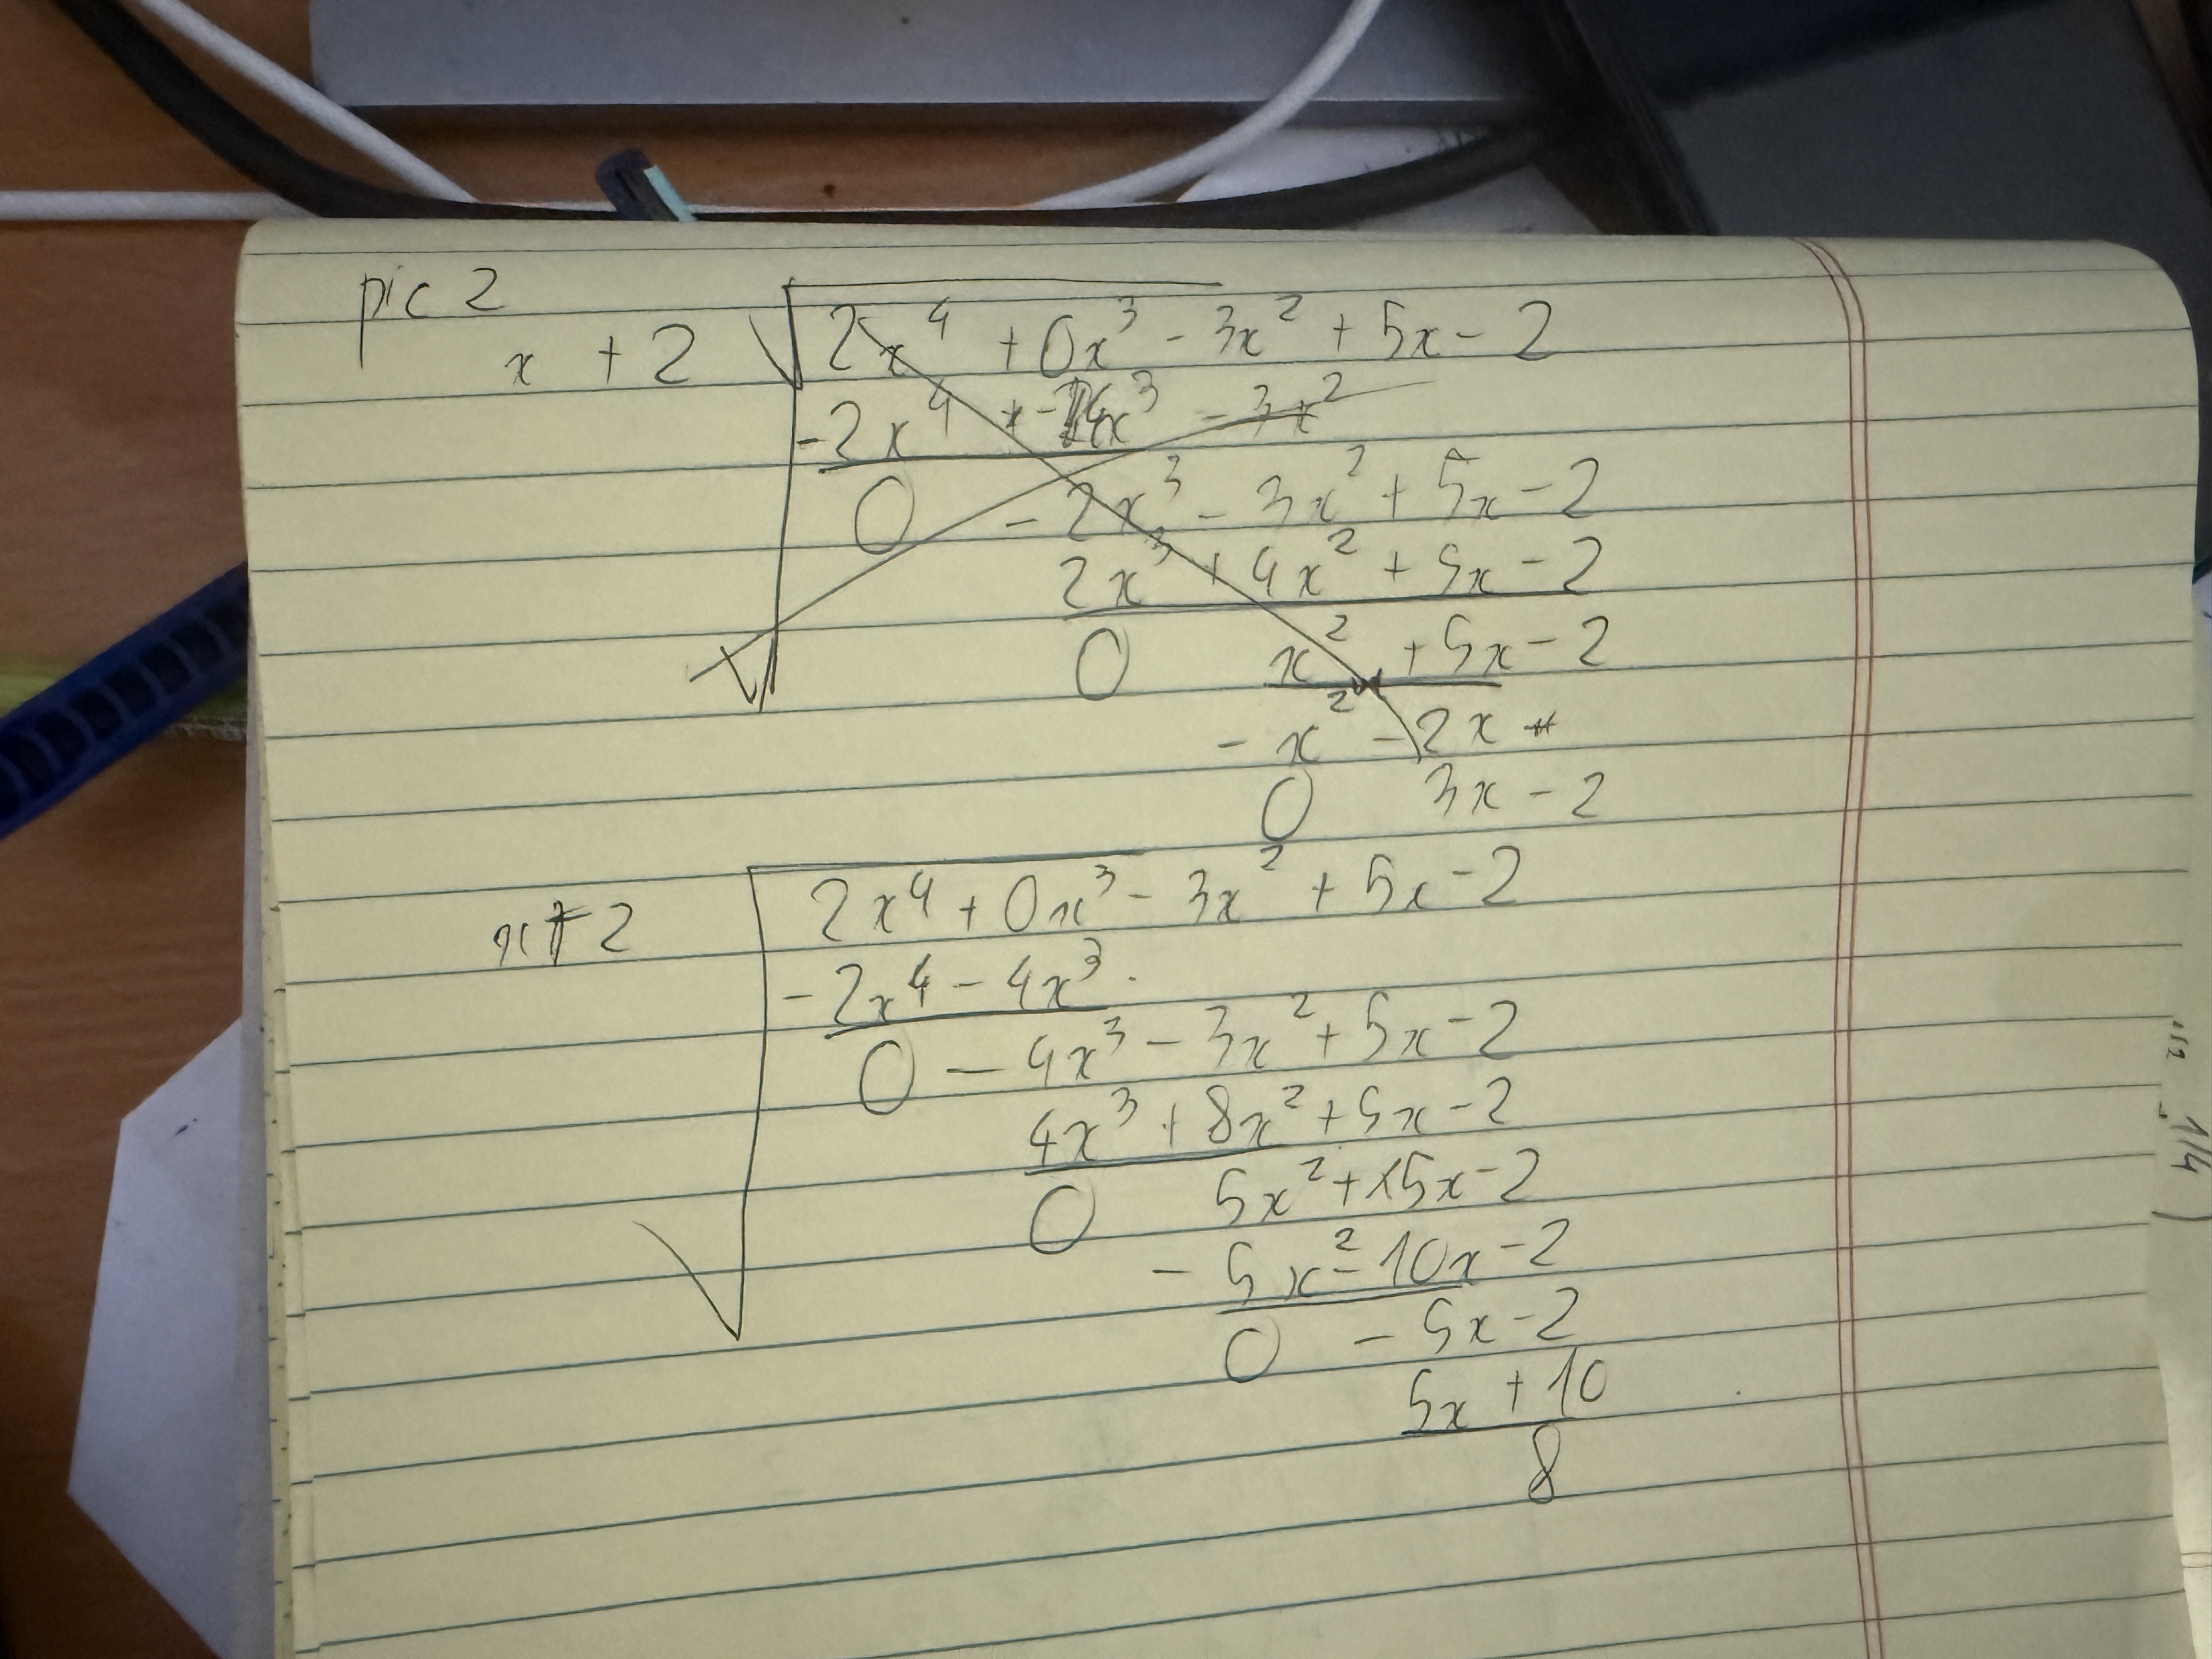 pic 2
x + 2 √ 2x⁴ + 0x³ - 3x² + 5x - 2
-2x⁴ + -4x³ - 3x²
0 - 2x³ - 3x² + 5x - 2
2x³ + 4x² + 5x - 2
0 x² + 5x - 2
- x² - 2x
0 3x - 2
x + 2 2x⁴ + 0x³ - 3x² + 5x - 2
-2x⁴ - 4x³.
0 - 4x³ - 3x² + 5x - 2
4x³ + 8x² + 5x - 2
0 5x² + 5x - 2
- 5x² - 10x - 2
0 - 5x - 2
5x + 10
8